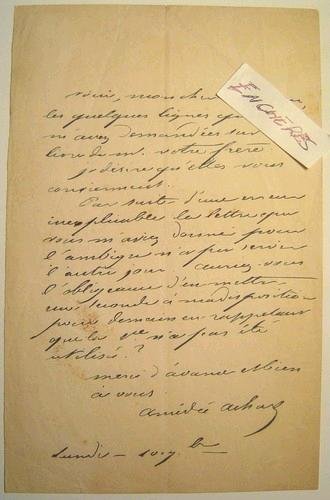 Voici, mon cher
ENCHERES
les quelques lignes
m'avez demandées sur
livre de M. votre frère
je désire qu'elles vous
conviennent.
Par suite d'une erreur
inexplicable la lettre que
vous m'aviez donné pour
l'ambigu n'a pu servir
l'autre jour. aurez-vous
l'obligeance d'en mettre
une seconde à ma disposition
pour demain en rappelant
que la 1re n'a pas été
utilisée ?
merci d'avance et bien
à vous
amédée achard
Lundi - 10 7bre